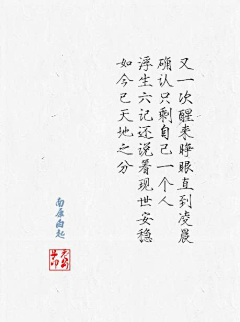 又一次醒来睁眼直到凌晨
确认只剩自己一个人
浮生六记还说着现世安稳
如今已天地之分
南辰向起